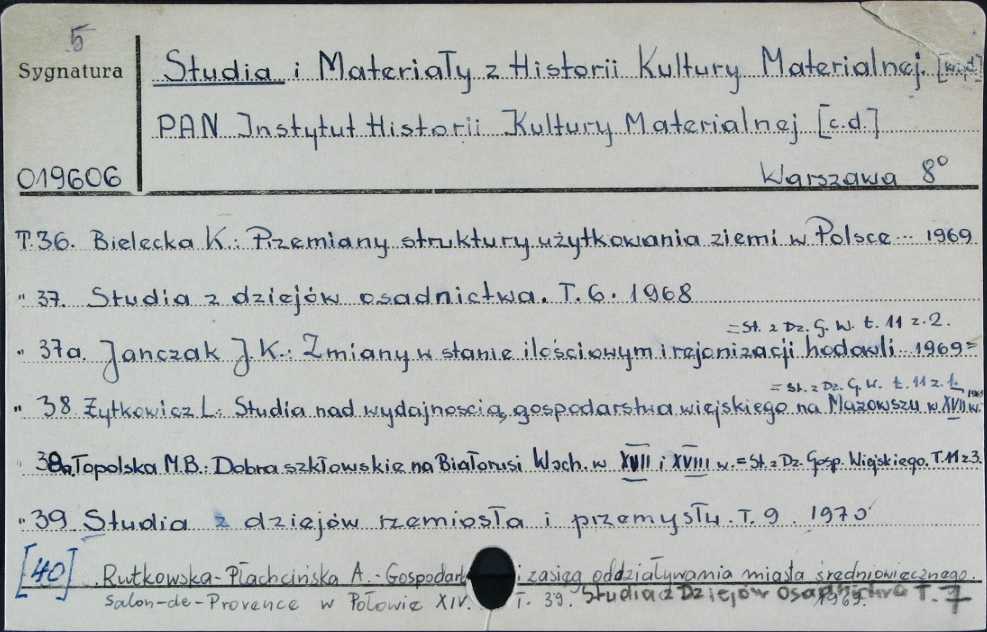 5
Sygnatura
Studia i Materiały z Historii Kultury Materialnej. [wyd]
PAN Instytut Historii Kultury Materialnej [c.d.]
019606
Warszawa 8°
T.36. Bielecka K.: Przemiany struktury użytkowania ziemi w Polsce ... 1969
" 37. Studia z dziejów osadnictwa. T. 6. 1968
= St. z Dz. G. W. t. 11 z. 2.
" 37a. Janczak J.K.: Zmiany w stanie ilościowym i rejonizacji hodowli .. 1969 =
= St. z Dz. G. W. t. 11 z 1. 1969
" 38. Żytkowicz L.: Studia nad wydajnością gospodarstwa wiejskiego na Mazowszu w XVII w.
" 38a. Topolska M.B.: Dobra szkłowskie na Białorusi Wsch. w XVII i XVIII w. = St. z Dz. Gosp. Wiejskiego. T. 11 z 3.
" 39 Studia z dziejów rzemiosła i przemysłu. T. 9. 1970
[40] Rutkowska-Płachcińska A. - Gospodark i zasięg oddziaływania miasta średniowiecznego.
Salon-de-Provence w Połowie XIV. T. 39. 1969. Studia z Dziejów Osadnictwa T. 7